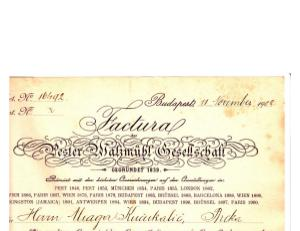 № 16492 Budapest, 11 November 1902
№ 2
Factura
der
Pester Walzmühl Gesellschaft
GEGRÜNDET 1839.
Prämiirt mit den höchsten Auszeichnungen auf den Ausstellungen in
PEST 1846, PEST 1853, MÜNCHEN 1854, PARIS 1855, LONDON 1862,
WIEN 1866, PARIS 1867, WIEN 1873, PARIS 1878, BUDAPEST 1885, BRÜSSEL 1888, BARCELONA 1888, WIEN 1890,
KINGSTON (JAMAICA) 1891, ANTWERPEN 1894, WIEN 1894, BUDAPEST 1896, BRÜSSEL 1897, PARIS 1900.
Herrn